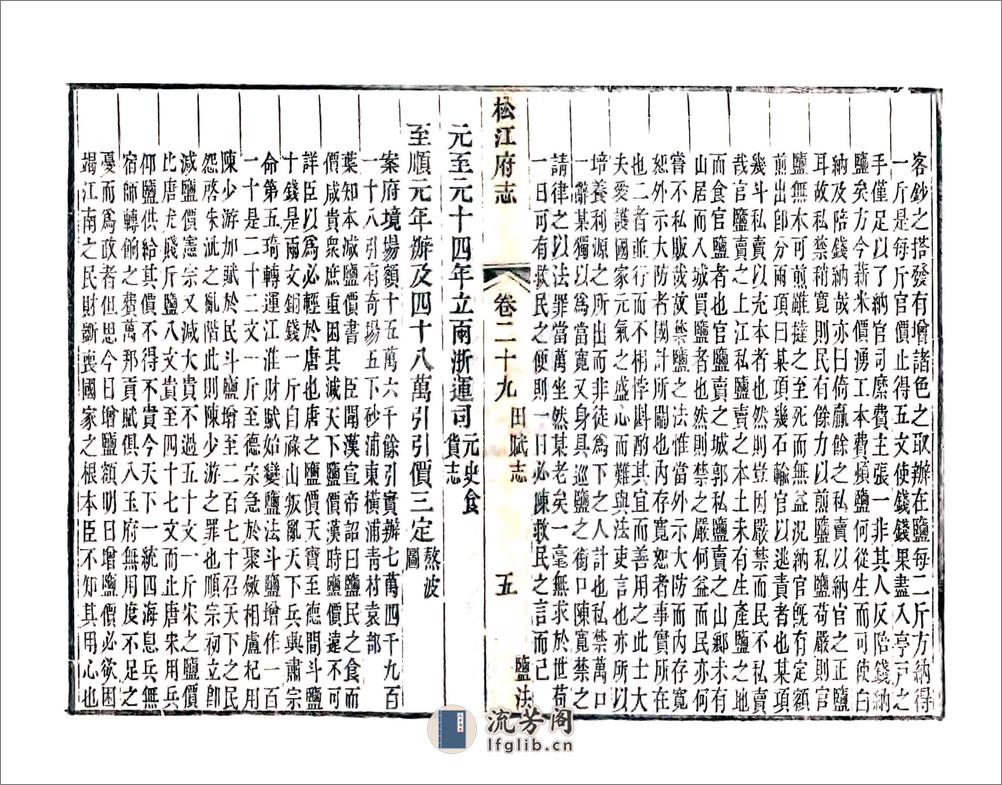 客鈔之搭發有增諸色之取辦在鹽每二斤方納得
一斤是每斤官價止得五文使錢錢果盡入亭戸之
手僅足以了納官司縻費主張一非其人反陪錢納
鹽矣方今薪米價湧工本費煩鹽何從生而可使白
納及陪錢納哉亦曰倚贏餘之私賣以納官之正鹽
耳故私禁稍寛則民有餘力以煎鹽私鹽苛嚴則官
鹽無本可煎雖撻之至死而無益況納官旣有定額
煎出卽分兩項幾石幾斗輸官以逃責者也某項
幾斗私賣以充本者也然則豈因嚴禁而民不私賣
哉官鹽賣之上江私鹽賣之本土未有生產鹽之地
而食官鹽者也官鹽賣之城郭私鹽賣之山鄉未有
山居而入城買鹽者也然則禁之嚴何益而民亦何
嘗不私販哉故禁鹽之法惟當外示大防而內存寛
恕外示大防者國計所關也內存寛恕者事實所在
也二者並行而不相悖斟酌其宜而善用之此士大
夫愛護國家元氣之盛心而難與法吏言也亦所以
培養利源之所出而非徒爲下之人計也私禁萬口
一辭某獨以爲當寛又身具巡鹽之銜口陳寛禁之
請律之以法罪當萬坐然某老矣一毫無求於世苟
一日可有救民之便則一日必陳救民之言而已
松江府志
卷二十九
田賦志
鹽法
五
元至元十四年立兩浙運司元史食
貨志
至順元年辦及四十八萬引引價三定熬波
圖
案府境場額十五萬六千餘引實辦七萬四千九百
一十八引有奇場五下砂浦東橫浦青村袁部
葉知本減鹽價書 臣聞漢宣帝詔曰鹽民之食而
價咸貴衆庶重困其減天下鹽價漢時鹽價不可
詳臣以爲必輕於唐也唐之鹽價天寶至德間斗鹽
十錢是兩文銅錢一斤自祿山叛亂天下兵興肅宗
命第五琦轉運江淮財賦始變鹽法斗鹽增作一百
一十是二十二文一斤至德宗急於聚斂相盧杞用
陳少游加賦於民斗鹽增至二百七十召天下之民
怨啓朱泚之亂階此則陳少游之罪也順宗初立卽
減鹽價憲宗又減大貴不過五十文一斤宋之鹽價
比唐尤賤斤鹽八文貴至四十七文而止唐宋用兵
仰鹽供給其價不得不貴今天下一統四海息兵無
宿師轉餉之費萬邦貢賦俱入玉府無用度不足之
憂而爲政者但思今日增鹽額明日增鹽價必欲困
竭江南之民財斷喪國家之根本臣不知其用心也
流芳阁
lfglib.cn